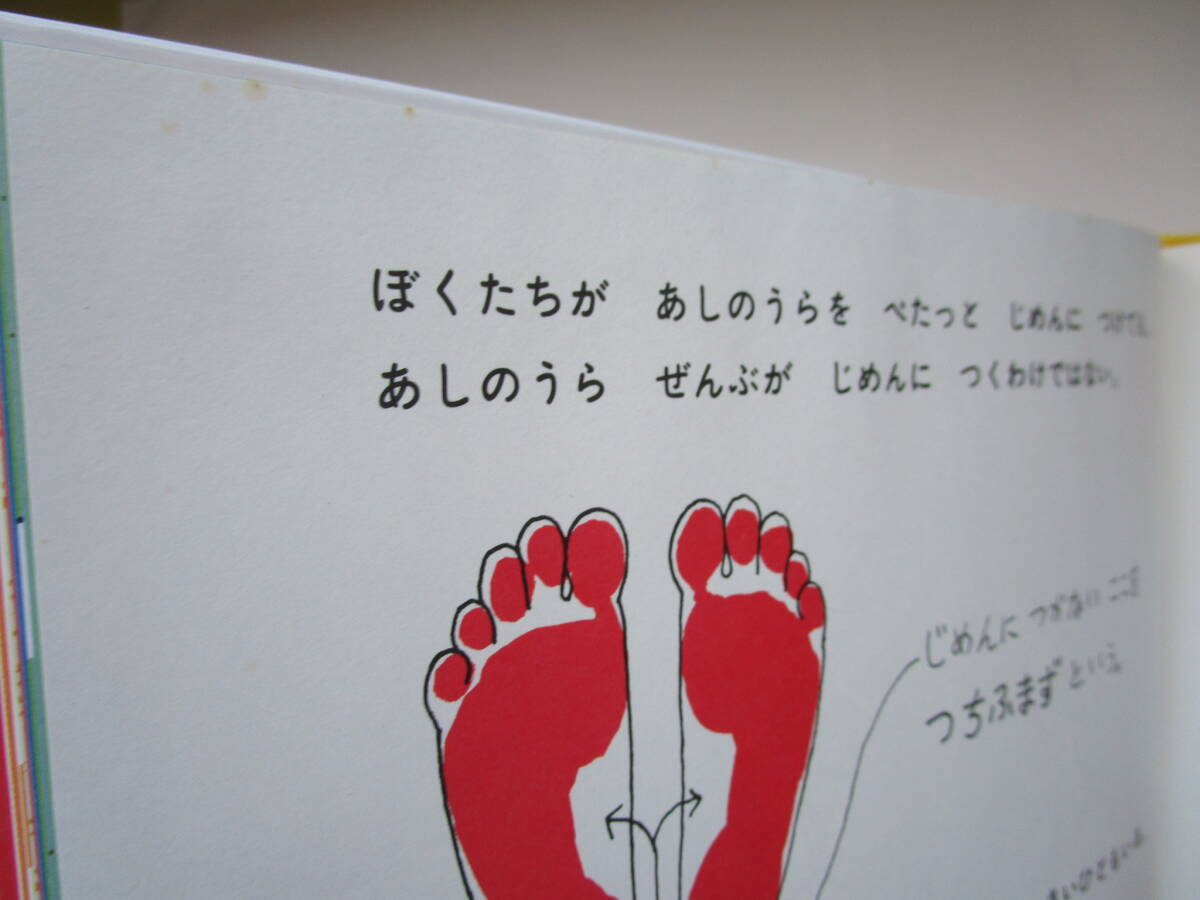 ぼくたちが あしのうらを ぺたっと じめんに つけても、
あしのうら ぜんぶが じめんに つくわけではない。
じめんに つかない ここは
つちふまず といえ